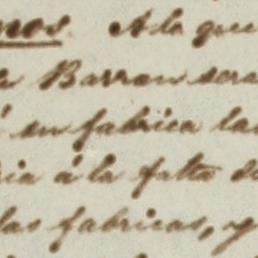 nos A la que
Barran sera
su fabrica la
ria á la falta d
las fabricas, y